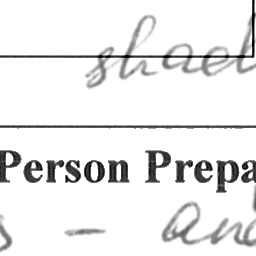 shad
Person Prepa
s - and